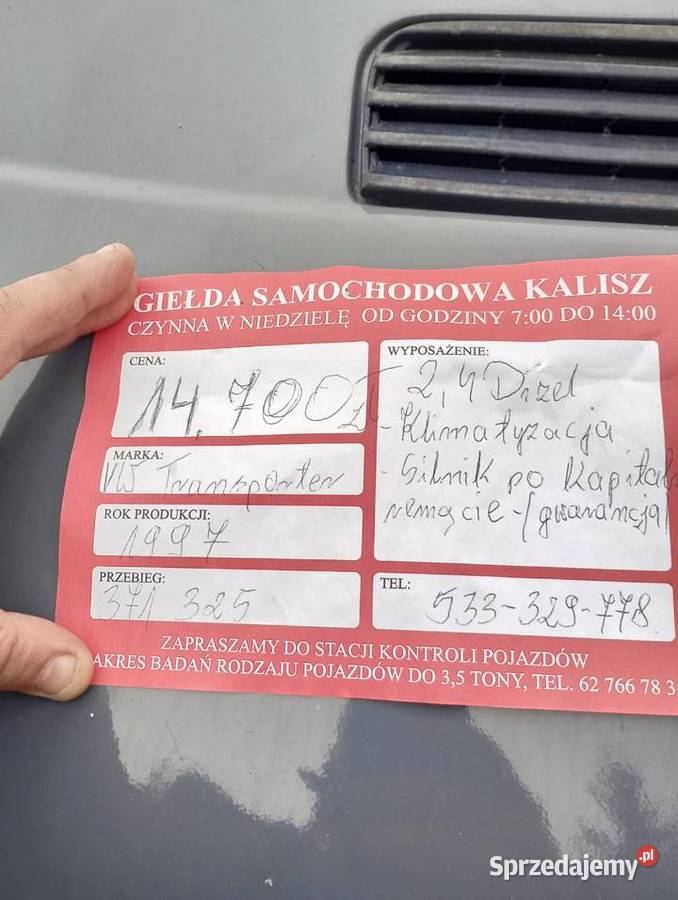 GIEŁDA SAMOCHODOWA KALISZ
CZYNNA W NIEDZIELĘ OD GODZINY 7:00 DO 14:00
CENA:
14.700zł
MARKA:
VW Transporter
ROK PRODUKCJI:
1997
PRZEBIEG:
371 325
WYPOSAŻENIE:
2,4 Dizel
- Klimatyzacja
- Silnik po Kapital
remącie - (gwarancja)
TEL:
533-329-778
ZAPRASZAMY DO STACJI KONTROLI POJAZDÓW
AKRES BADAŃ RODZAJU POJAZDÓW DO 3,5 TONY, TEL. 62 766 78 3
Sprzedajemy.pl